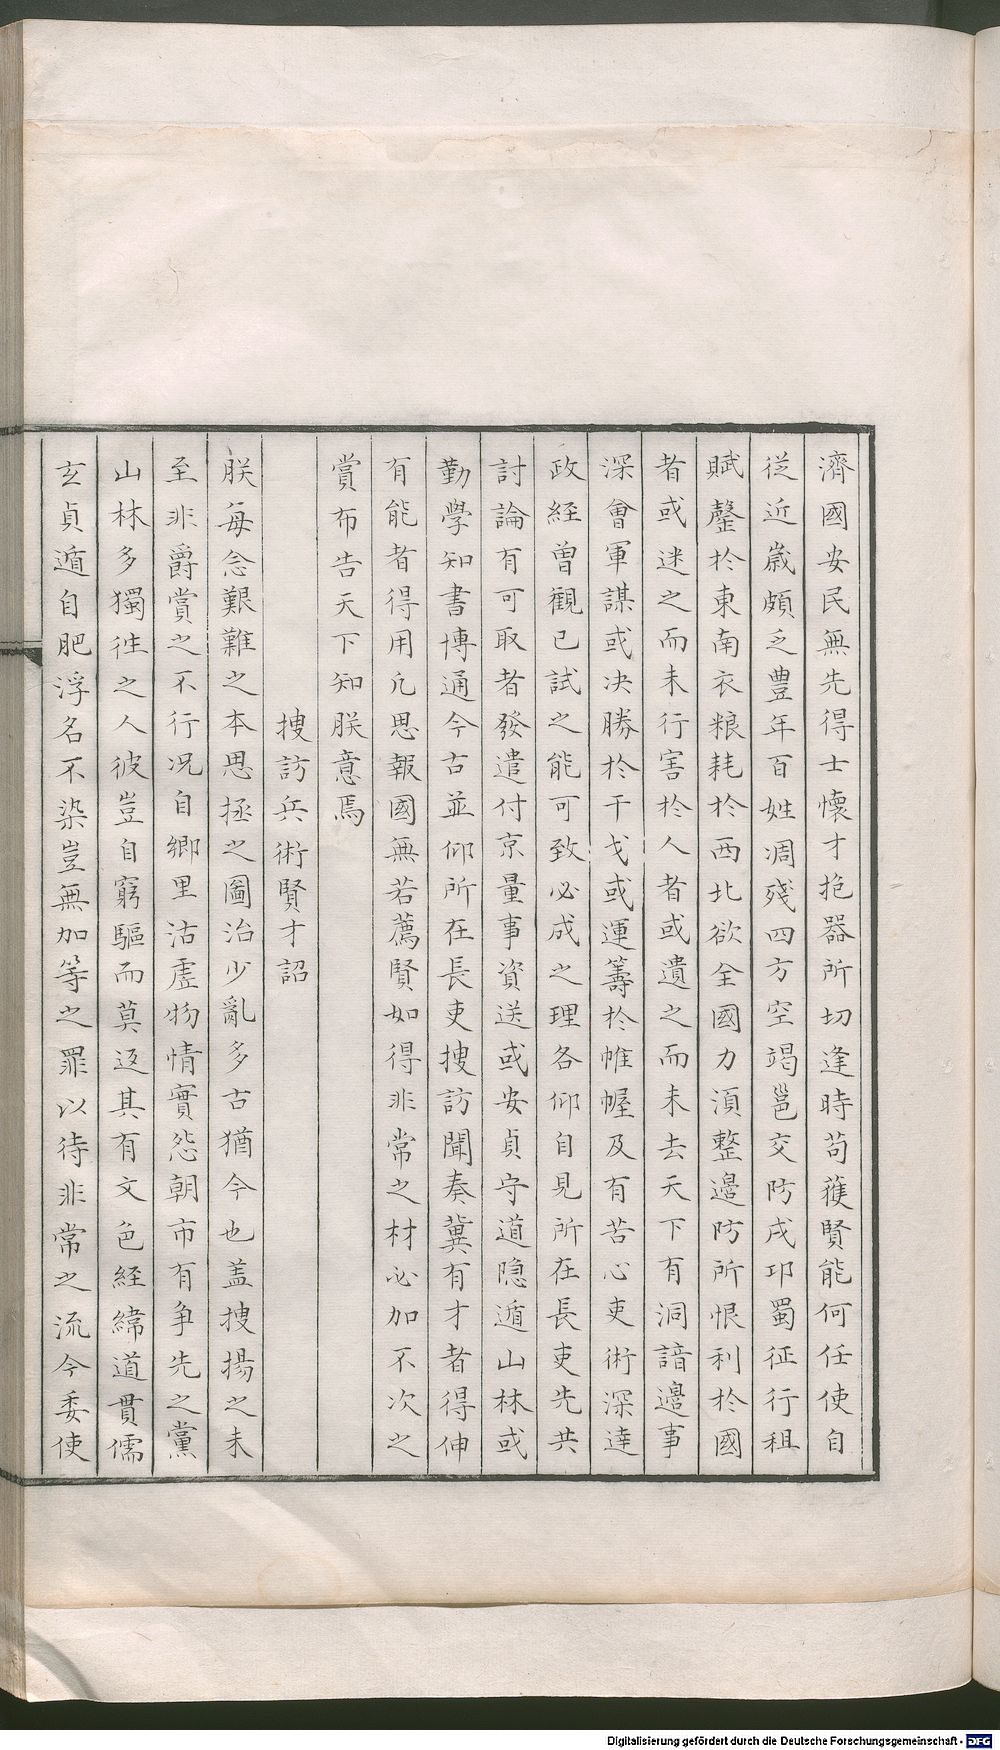 濟國安民無先得士懷才抱器所切逢時苟蒦賢能何任使自
従近歳頗乏豊年百姓凋殘四方空竭邕交防戌邛蜀征行租
賦罄於東南衣粮耗於西北欲全國力湏整邊防所恨利於國
者或迷之而未行害於人者或遺之而未去天下有洞諳邊事
深會軍謀或决勝於干戈或運籌於帷幄及有苦心吏術深達
政経曽觀已試之能可致必成之理各仰自見所在長吏先共
討論有可取者發遣付京量事資送或安貞守道隠遁山林或
勤學知書博通今古並仰所在長吏搜訪聞奏冀有才者得伸
有能者得用凢思報國無若薦賢如得非常之材必加不次之
賞布告天下知朕意焉
搜訪兵術賢才詔
朕每念艱難之本思拯之圖治少亂多古猶今也盖搜揚之未
至非爵賞之不行况自鄉里沽虗物情實惄朝市有争先之黨
山林多獨徃之人彼豈自窮驅而莫返其有文色経緯道貫儒
玄貞遁自肥浮名不染豈無加等之罪以待非常之流今委使
Digitalisierung gefördert durch die Deutsche Forschungsgemeinschaft - DFG